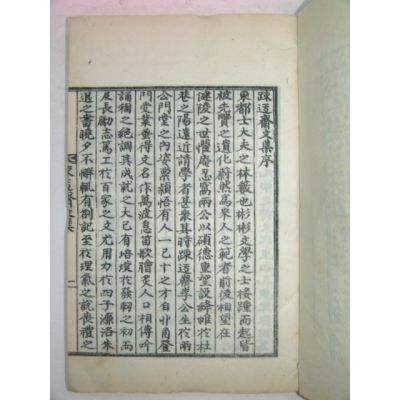 踈迃齋文集序
東都士大夫之林藪也彬彬文學之士接踵而起皆
被先賢之遺化蔚然爲來人之範者前後相望在
健陵之世懼庵忍窩兩公以碩德重望設講帷於杜
巷之陽遠近請學者甚衆其時踈迃齋李公生於兩
公門堂之內姿稟穎悟有人一己十之才自丱角登
門堂業蚤得文名作萬波息笛歌膾炙人口相傳吟
誦稱之絶調其成就之大已有培壤於發軔之初而
及長勵志篤工於百家之文尤用力於四子濂洛朱
退之書曉夕不懈輒有劄記至於理氣之說喪禮之